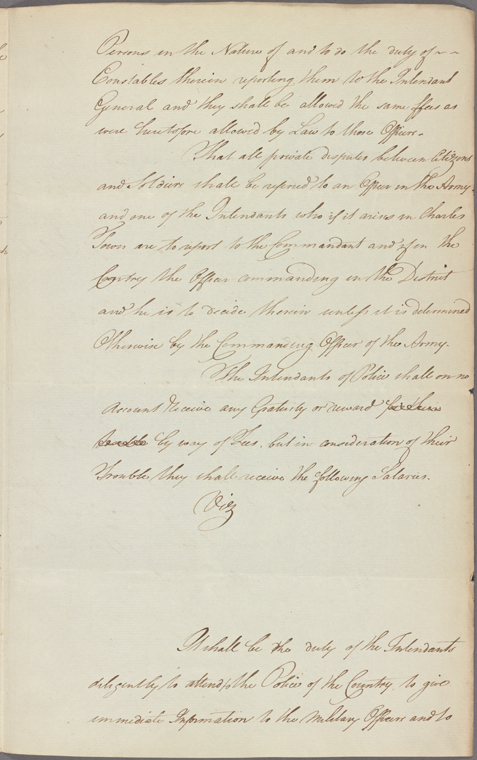 Persons in the Nature of and to do the duty of ~~
Constables therein reporting them to the Intendant
General and they shall be allowed the same ffees as
were heretofore allowed by Law to those Officers.
That all private disputes between Citizens
and Soldiers shall be referred to an Officer in the Army
and one of the Intendants who if it arises in Charles
Town are to report to the Commandant and if on the
Contry the Officer commanding in the District
and he is to decide therein unless it is determined
Otherwise by the Commanding Officer of the Army.
The Intendants of Police shall on no
Account Receive any Gratuity or reward for their
trouble by way of Fees. but in consideration of their
Trouble they shall receive the following Salaries.
Viz
It shall be the duty of the Intendants
diligently to attend to the Police of the Country, to give
immediate Information to the Military Officers and to